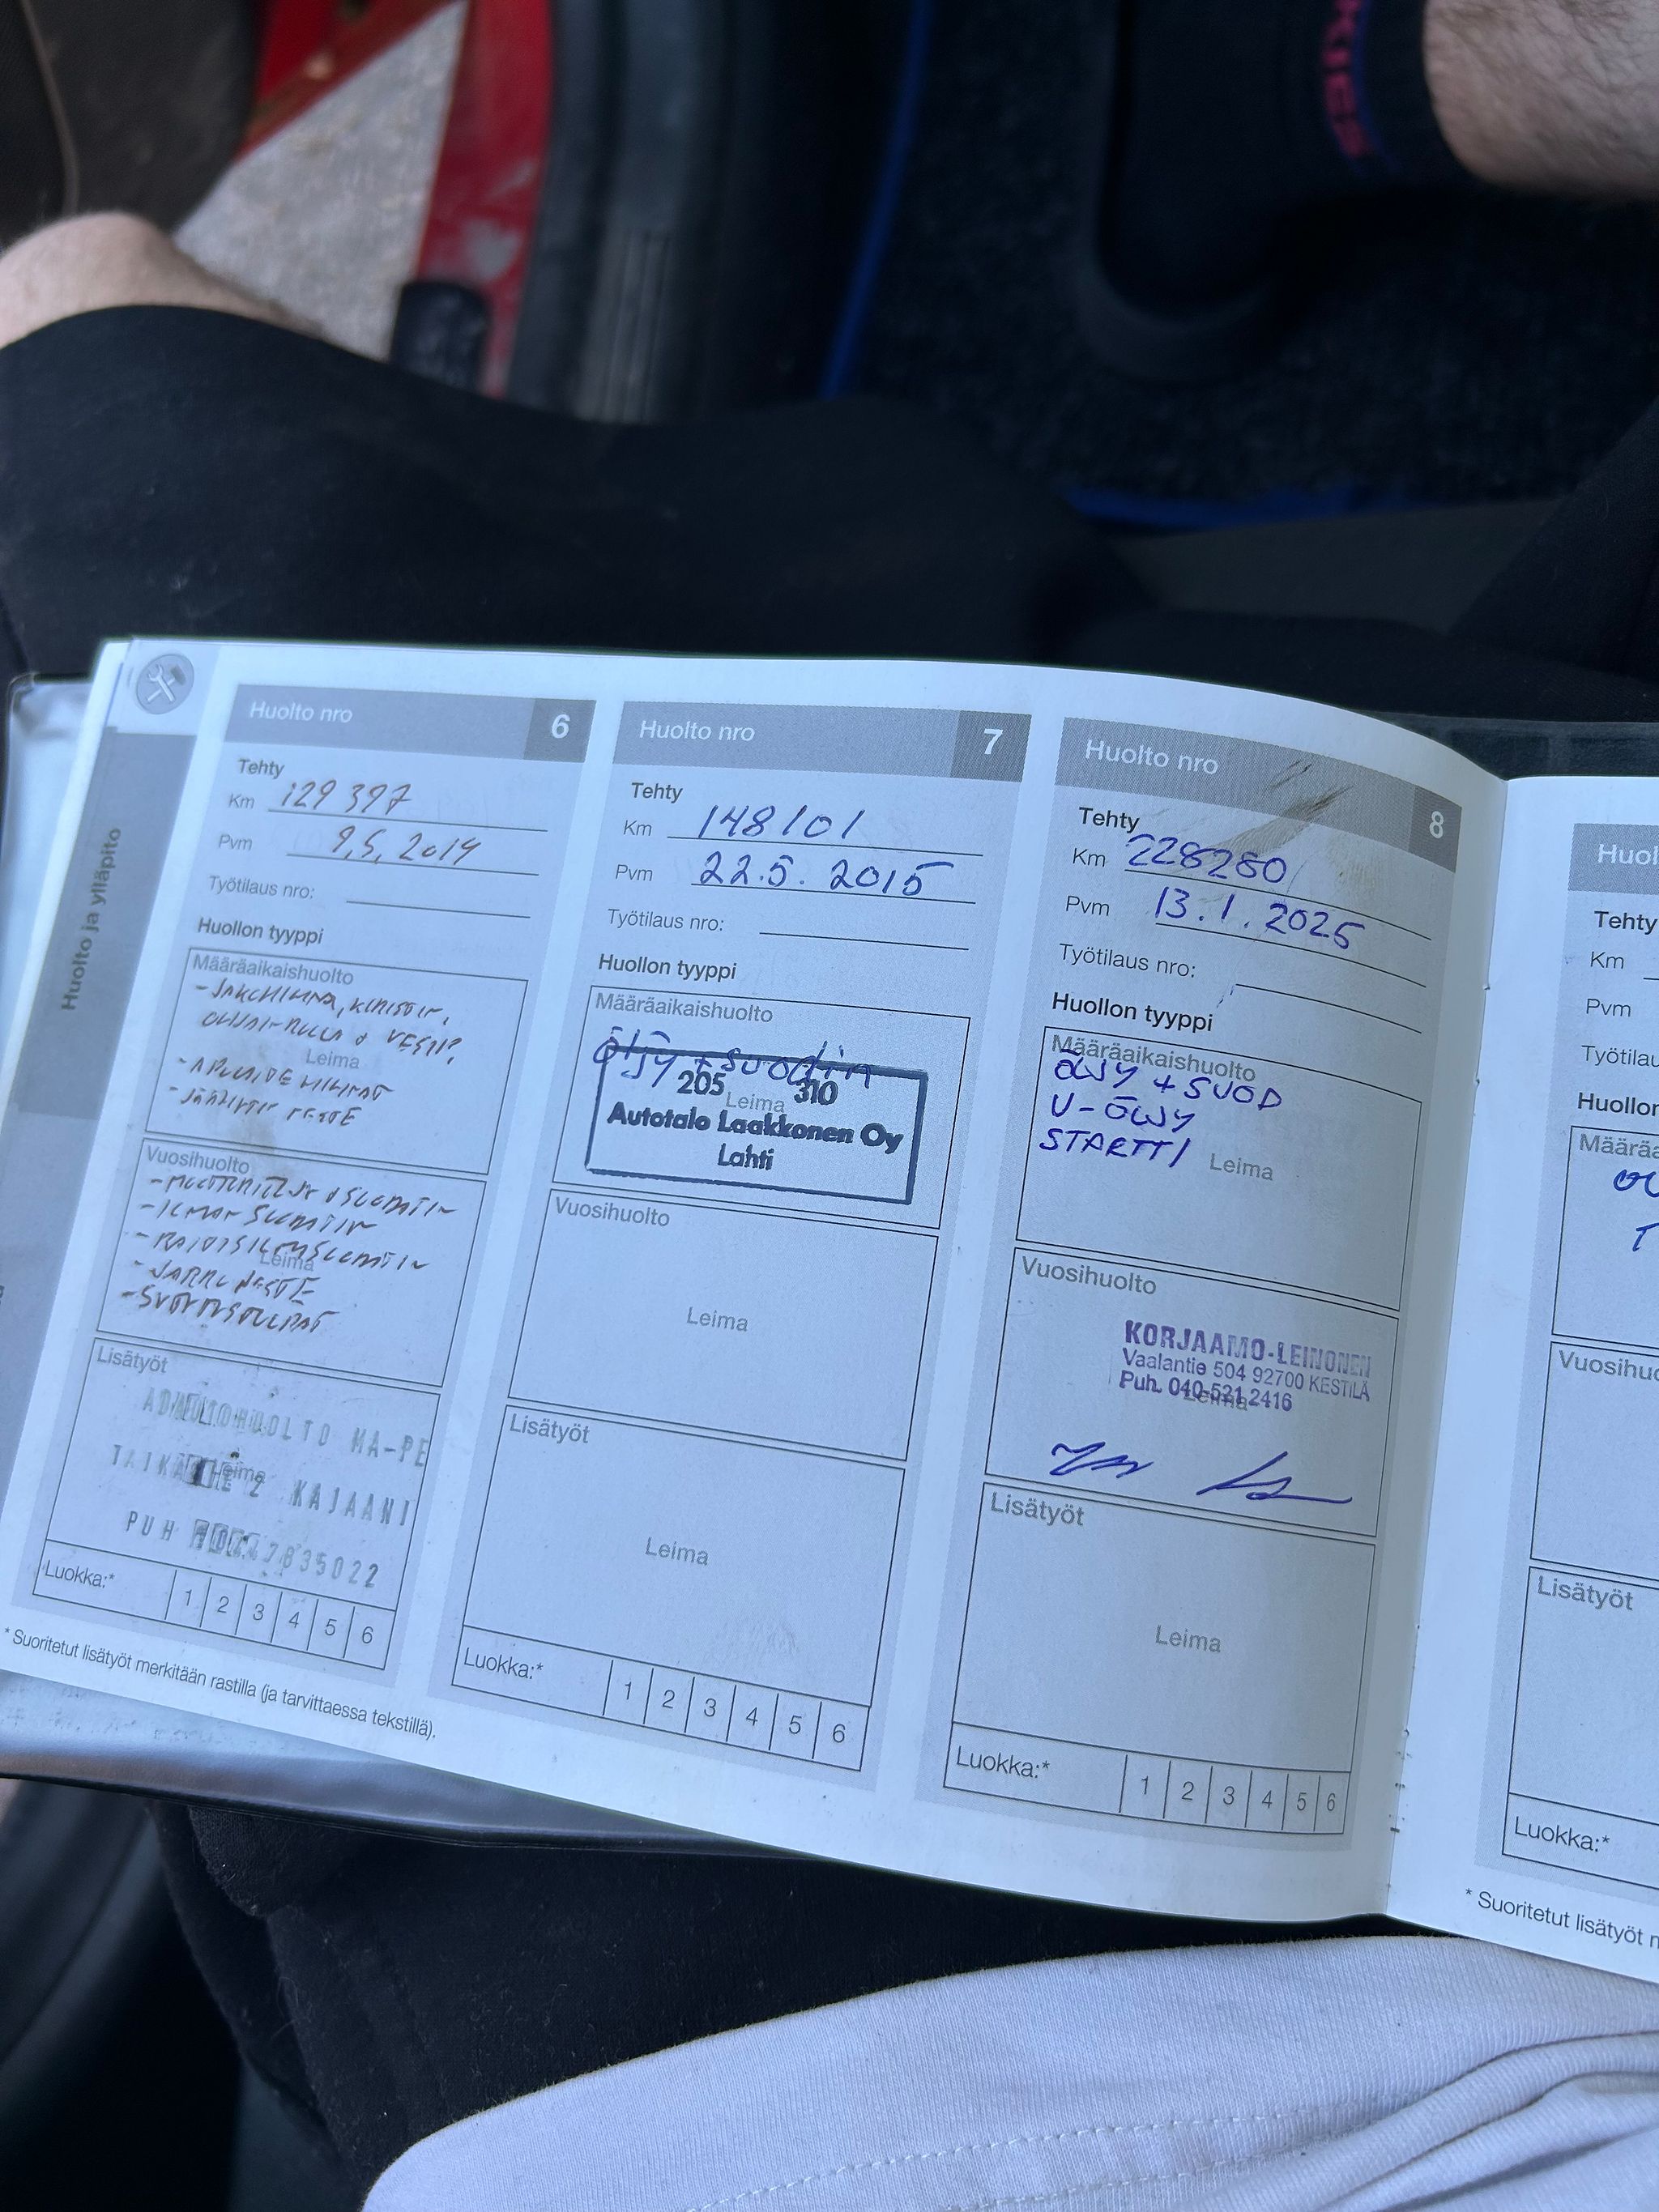 Huolto ja ylläpito
Huolto nro 6
Tehty
Km 129 397
Pvm 9.5.2014
Työtilaus nro:
Huollon tyyppi
Määräaikaishuolto
- JAKOHIHNA, KIRISTIN,
OHJAINRULLA & VESIP.
Leima
- APULAITE HIHNAT
- JÄÄHDYTIN NESTE
Vuosihuolto
- MOOTTORIÖLJY & SUODATIN
- ILMAN SUODATIN
- RAITISILMASUODATIN
Leima
- JARRU NESTE
- SYTYTYSTULPAT
Lisätyöt
MA-PE
Leima
2 KAJAANI
PUH 7835022
Luokka:* 1 2 3 4 5 6
* Suoritetut lisätyöt merkitään rastilla (ja tarvittaessa tekstillä).
Huolto nro 7
Tehty
Km 148101
Pvm 22.5.2015
Työtilaus nro:
Huollon tyyppi
Määräaikaishuolto
öljy + suodin
205 310
Leima
Autotalo Laakkonen Oy
Lahti
Vuosihuolto
Leima
Lisätyöt
Leima
Luokka:* 1 2 3 4 5 6
Huolto nro 8
Tehty
Km 228280
Pvm 13.1.2025
Työtilaus nro:
Huollon tyyppi
Määräaikaishuolto
ÖLJY + SUOD
V-ÖLJY
STARTTI
Leima
Vuosihuolto
KORJAAMO-LEINONEN
Vaalantie 504 92700 KESTILÄ
Puh. 040-521 2416
Leima
Lisätyöt
Leima
Luokka:* 1 2 3 4 5 6
Huol
Tehty
Km
Pvm
Työtilau
Huollon
Määräa
Vuosihuo
Lisätyöt
Luokka:*
* Suoritetut lisätyöt m